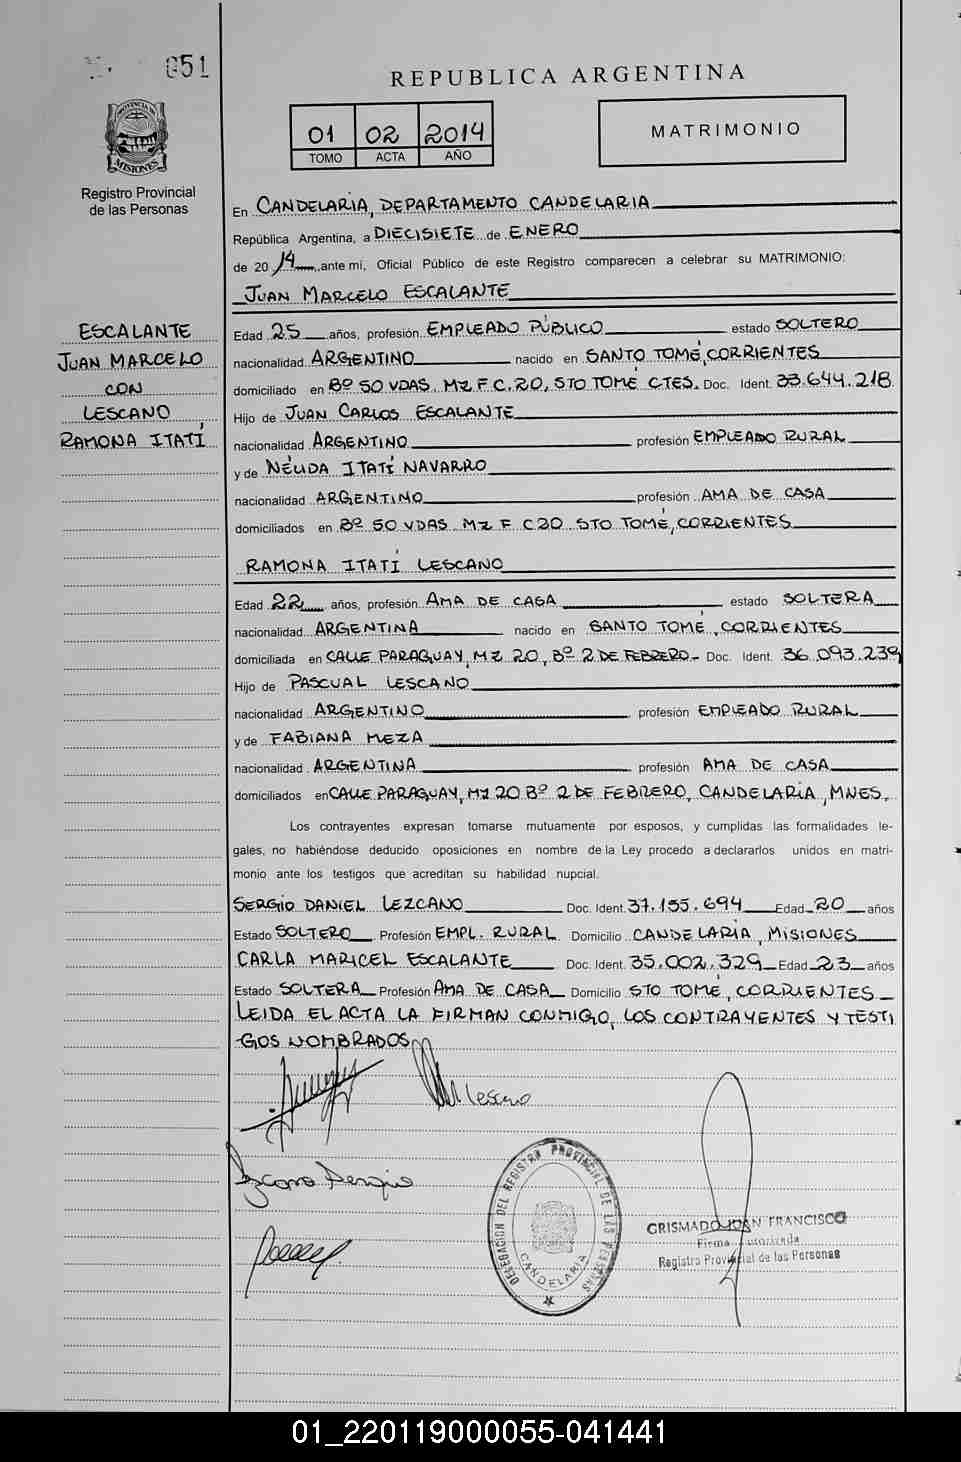 051
REPUBLICA ARGENTINA
01 02 2014
TOMO ACTA AÑO
MATRIMONIO
PROVINCIA DE
MISIONES
Registro Provincial
de las Personas
En CANDELARIA, DEPARTAMENTO CANDELARIA
República Argentina, a DIECISIETE de ENERO
de 2014, ante mí, Oficial Público de este Registro comparecen a celebrar su MATRIMONIO:
JUAN MARCELO ESCALANTE
ESCALANTE
JUAN MARCELO
CON
LESCANO
RAMONA ITATÍ
Edad 25 años, profesión EMPLEADO PÚBLICO estado SOLTERO
nacionalidad ARGENTINO nacido en SANTO TOMÉ, CORRIENTES
domiciliado en Bº 50 VDAS. MZ F C. 20, STO TOMÉ CTES. Doc. Ident. 33.644.218
Hijo de JUAN CARLOS ESCALANTE
nacionalidad ARGENTINO profesión EMPLEADO RURAL
y de NÉLIDA ITATÍ NAVARRO
nacionalidad ARGENTINO profesión AMA DE CASA
domiciliados en Bº 50 VDAS MZ F C 20 STO TOMÉ, CORRIENTES
RAMONA ITATÍ LESCANO
Edad 22 años, profesión AMA DE CASA estado SOLTERA
nacionalidad ARGENTINA nacido en SANTO TOMÉ, CORRIENTES
domiciliada en CALLE PARAGUAY, MZ 20, Bº 2 DE FEBRERO- Doc. Ident. 36.093.239
Hijo de PASCUAL LESCANO
nacionalidad ARGENTINO profesión EMPLEADO RURAL
y de FABIANA MEZA
nacionalidad ARGENTINA profesión AMA DE CASA
domiciliados en CALLE PARAGUAY, MZ 20 Bº 2 DE FEBRERO, CANDELARIA, MNES,
Los contrayentes expresan tomarse mutuamente por esposos, y cumplidas las formalidades le-
gales, no habiéndose deducido oposiciones en nombre de la Ley procedo a declararlos unidos en matri-
monio ante los testigos que acreditan su habilidad nupcial.
SERGIO DANIEL LEZCANO Doc. Ident. 37.155.694 Edad 20 años
Estado SOLTERO Profesión EMPL. RURAL Domicilio CANDELARIA, MISIONES
CARLA MARICEL ESCALANTE Doc. Ident. 35.002.329 Edad 23 años
Estado SOLTERA Profesión AMA DE CASA Domicilio STO TOMÉ, CORRIENTES
LEIDA EL ACTA LA FIRMAN CONMIGO, LOS CONTRAYENTES Y TESTI
-GOS NOMBRADOS
Lescano
Lezcano Sergio
DELEGACION DEL REGISTRO PROVINCIAL DE LAS PERSONAS
CANDELARIA
GRISMADO JUAN FRANCISCO
Firma Autorizada
Registro Provincial de las Personas
01_220119000055-041441